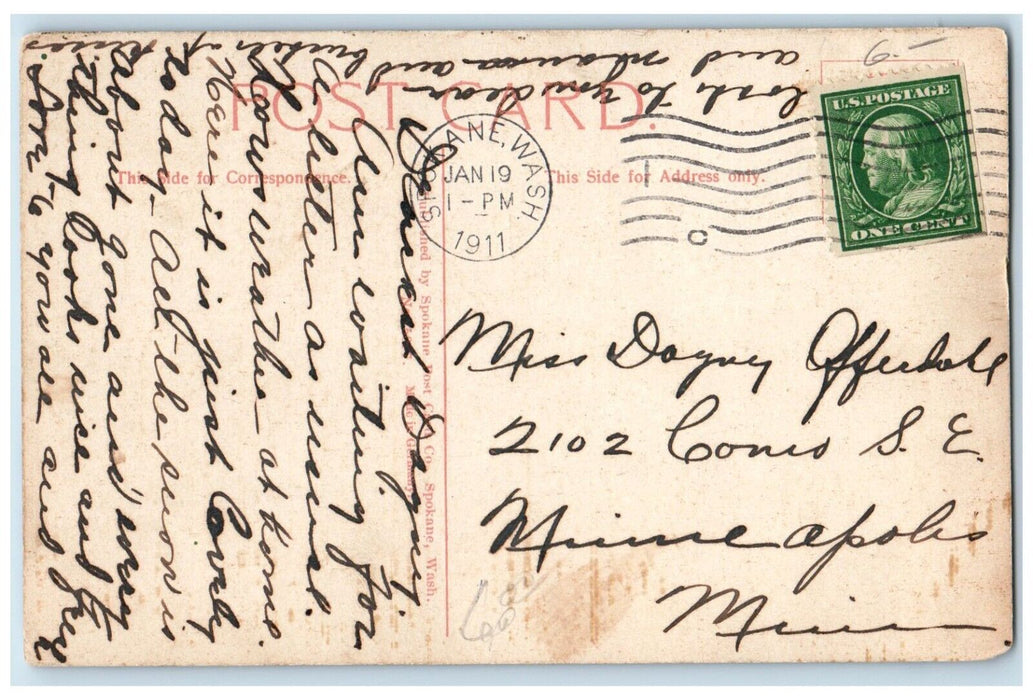 POST CARD.
This Side for Correspondence.
This Side for Address only.
SPOKANE, WASH
JAN 19
1-PM
1911
U.S. POSTAGE
ONE CENT
6-
Miss Dagny Offerdahl
2102 Como S. E.
Minneapolis
Minn
Published by Spokane Post Card Co., Spokane, Wash.
Made in Germany
Dearest Dagny.
Am waiting for
a letter as usual.
Hows weather at home.
Here it is just lovely
today - All the snow is
about gone and every
thing looks nice and
How is you all and
and
look to you dear